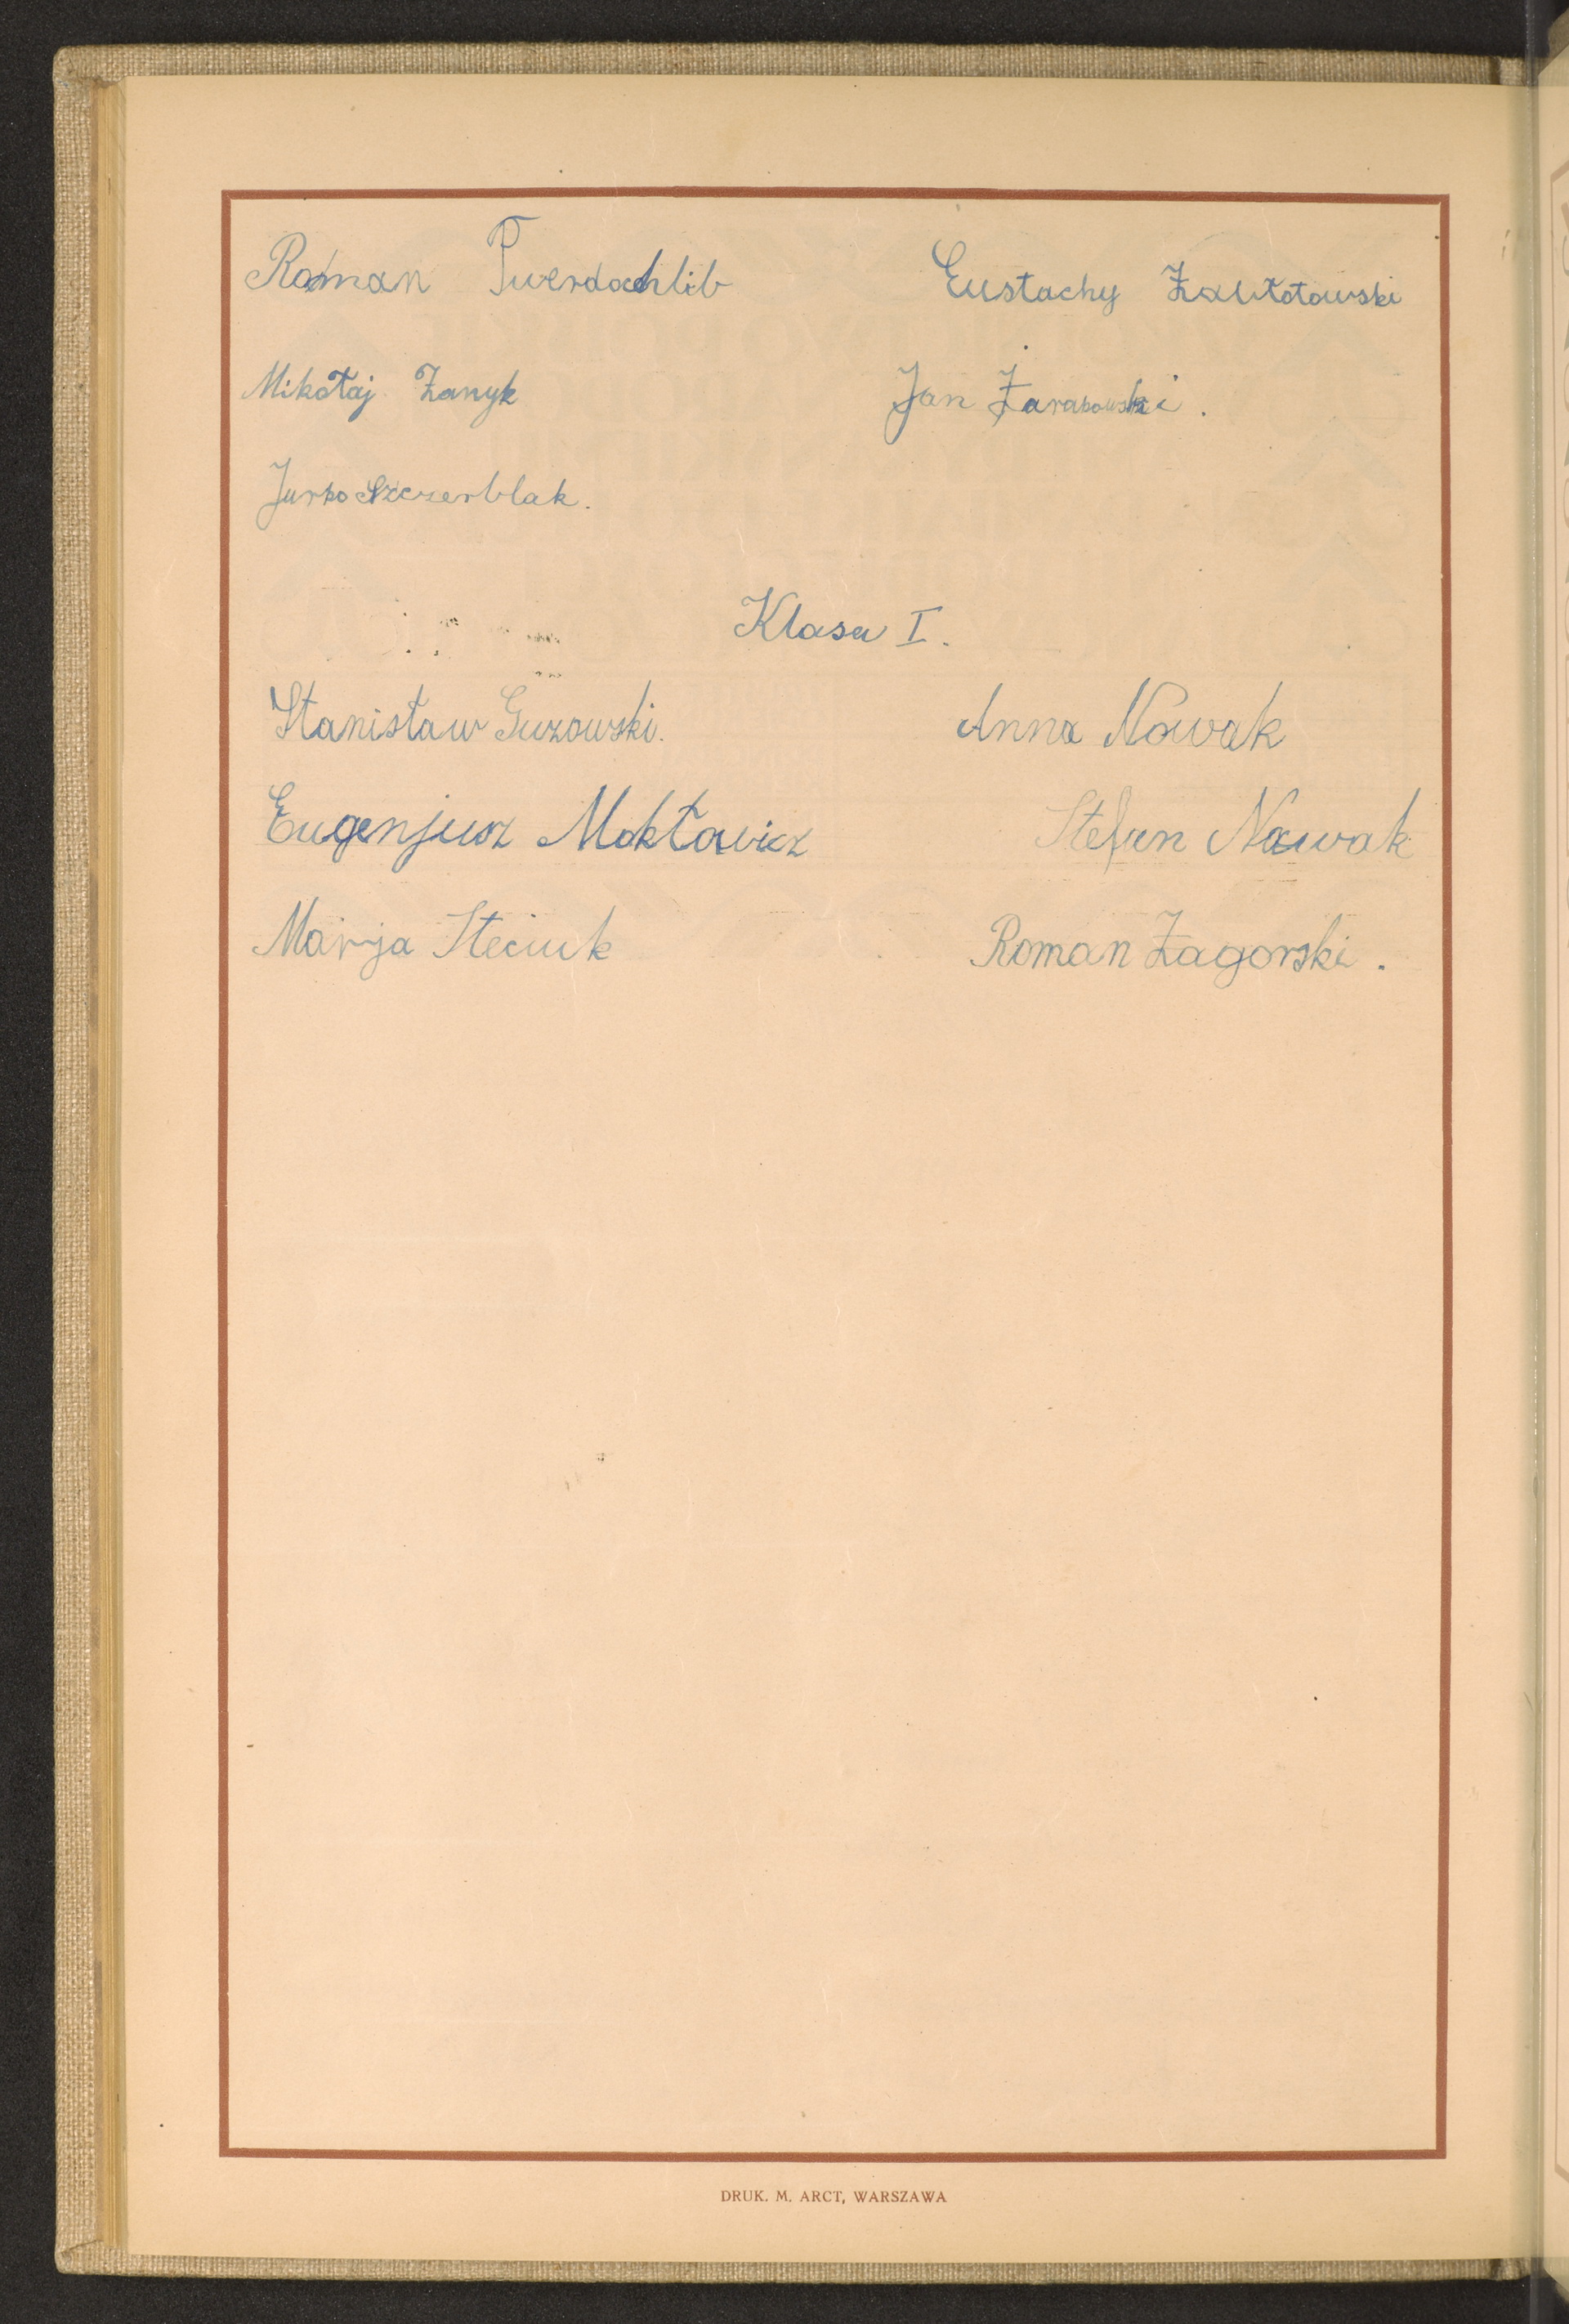 Roman Twerdochlib Eustachy Zawłotowski
Mikołaj Zanyk Jan Żarabowski.
Jurko Szczerblak.
Klasa I.
Stanisław Guzowski. Anna Nowak
Eugenjusz Mokławicz Stefan Nawak
Marja Steciuk Roman Zagorski.
DRUK. M. ARCT, WARSZAWA